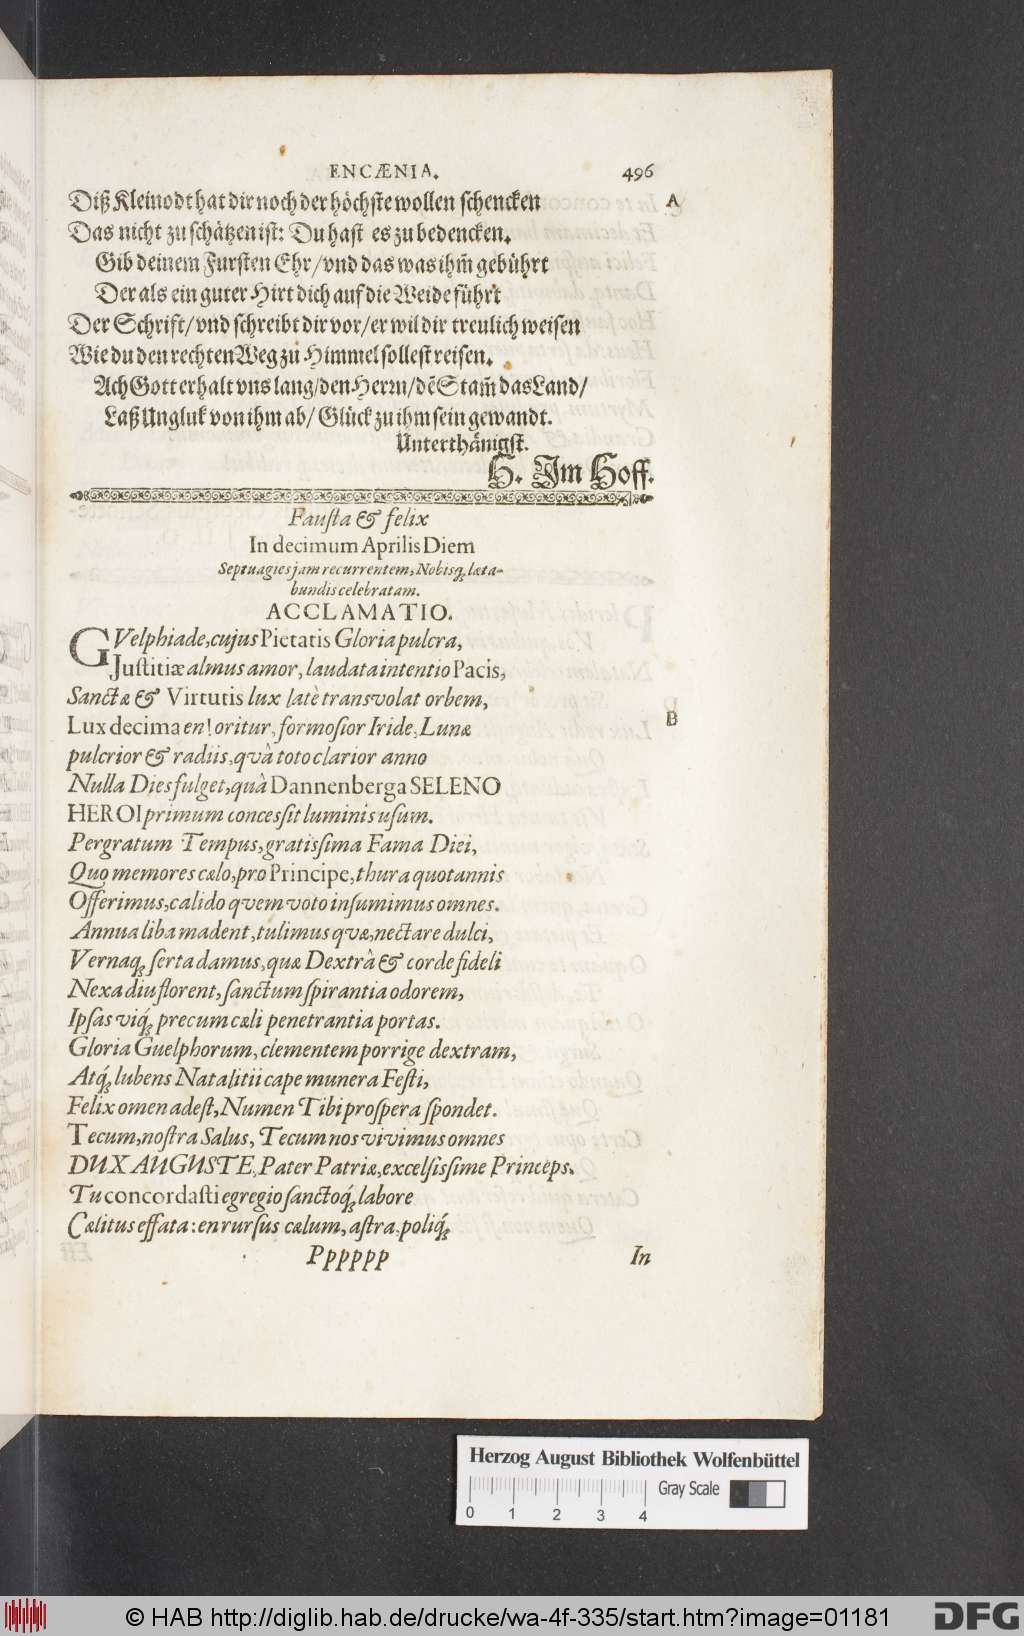 ENCÆNIA. 496
Diß Kleinodt hat dir noch der höchste wollen schencken A
Das nicht zu schätzen ist: Du hast es zu bedencken.
Gib deinem Fursten Ehr/vnd das was ihm̃ gebührt
Der als ein guter Hirt dich auf die Weide führt
Der Schrift/vnd schreibt dir vor/er wil dir treulich weisen
Wie du den rechten Weg zu Himmel sollest reisen.
Ach Gott erhalt vns lang/den Herrn/dē Stam̃ das Land/
Laß Ungluk von ihm ab/ Glück zu ihm sein gewandt.
Unterthänigst.
H. Im Hoff.
Fausta & felix
In decimum Aprilis Diem
Septuagies jam recurrentem, Nobisq; læta-
bundis celebratam.
ACCLAMATIO.
GVelphiade, cujus Pietatis Gloria pulcra,
Justitiæ almus amor, laudata intentio Pacis,
Sanctæ & Virtutis lux latè transvolat orbem,
Lux decima en! oritur, formosior Iride, Lunæ B
pulcrior & radiis, qvâ toto clarior anno
Nulla Dies fulget, quà Dannenberga SELENO
HEROI primum concessit luminis usum.
Pergratum Tempus, gratissima Fama Diei,
Quo memores cælo, pro Principe, thura quotannis
Offerimus, calido qvem voto insumimus omnes.
Annua liba madent, tulimus qvæ, nectare dulci,
Vernaq; serta damus, quæ Dextrâ & corde fideli
Nexa diu florent, sanctum spirantia odorem,
Ipsas viq́; precum cæli penetrantia portas.
Gloria Guelphorum, clementem porrige dextram,
Atq́; lubens Natalitii cape munera Festi,
Felix omen adest, Numen Tibi prospera spondet.
Tecum, nostra Salus, Tecum nos vivimus omnes
DUX AUGUSTE, Pater Patriæ, excelsissime Princeps.
Tu concordasti egregio sanctoq́; labore
Cælitus effata: en rursus cælum, astra, poliq́;
Pppppp In
Herzog August Bibliothek Wolfenbüttel
Gray Scale
0 1 2 3 4
© HAB http://diglib.hab.de/drucke/wa-4f-335/start.htm?image=01181 DFG